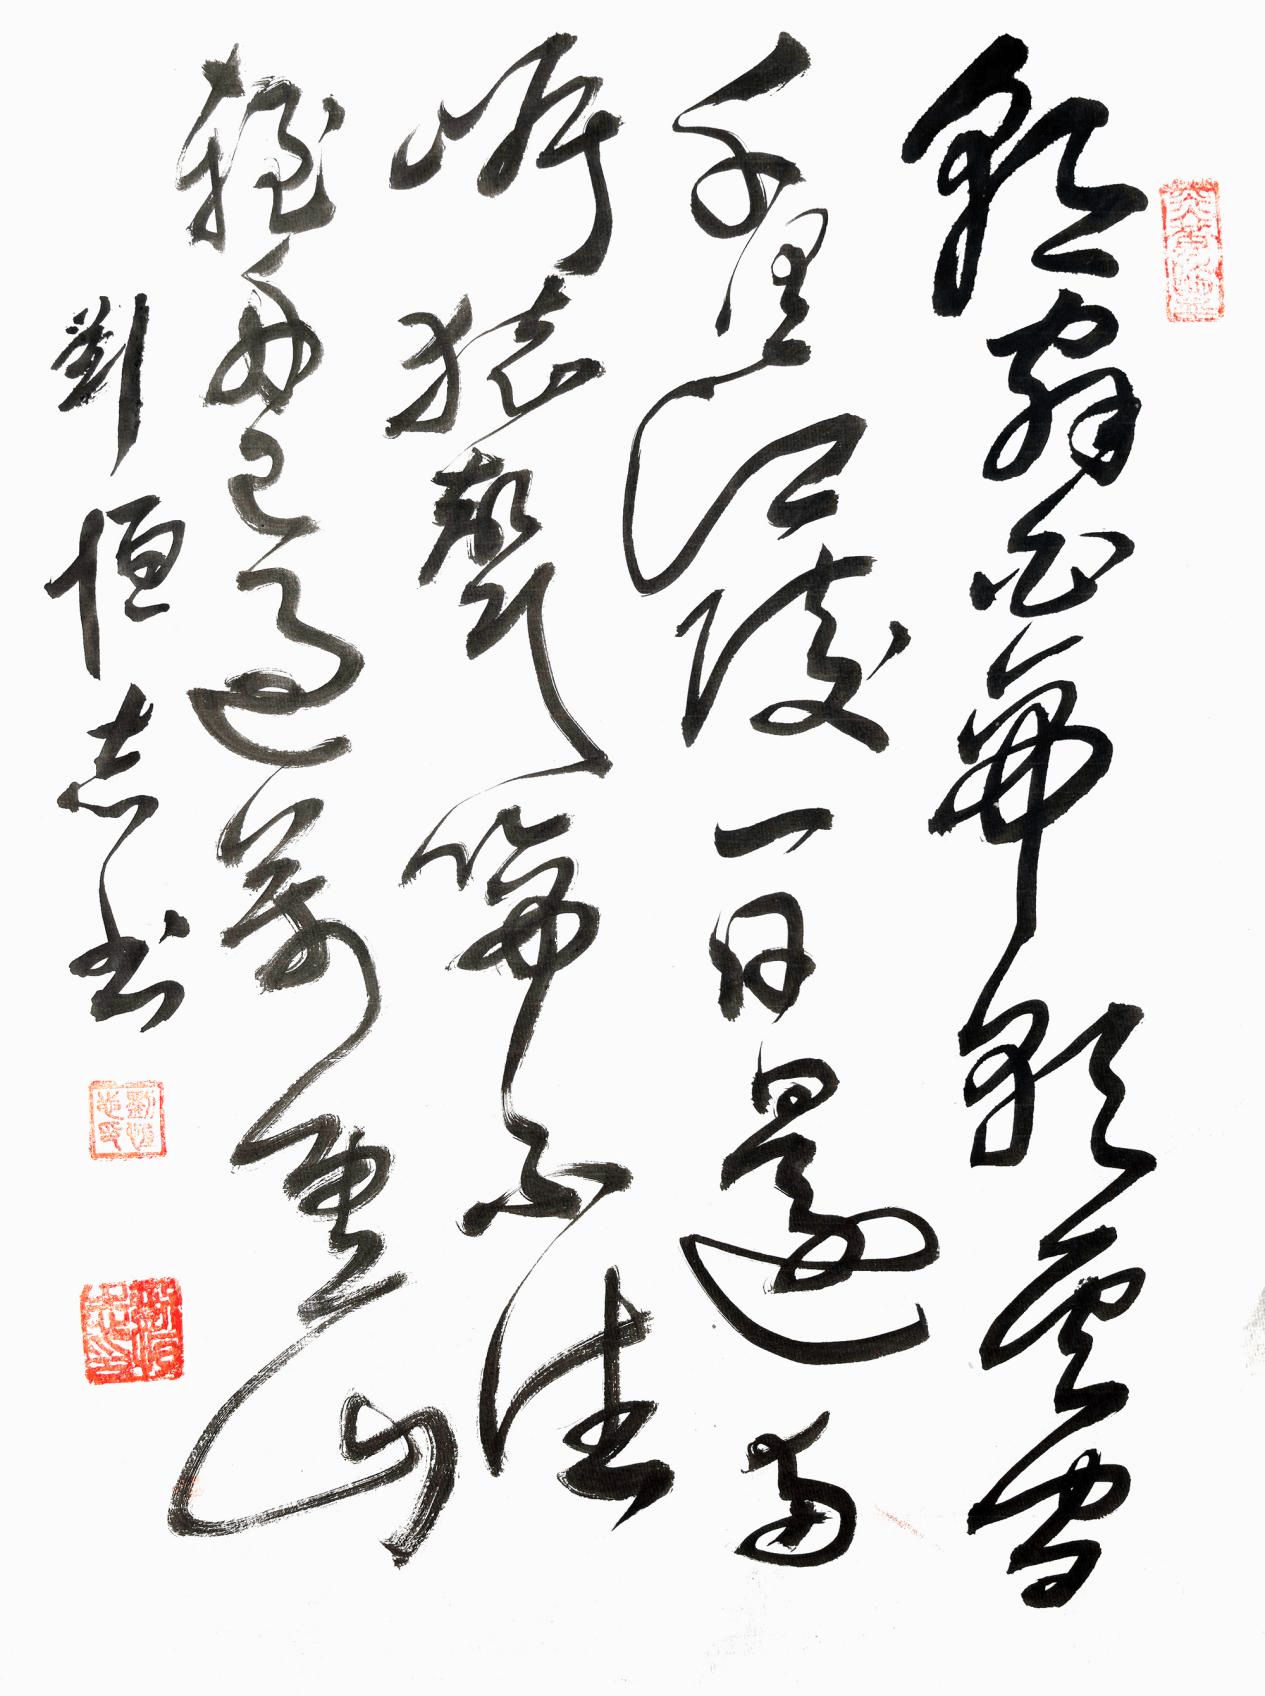 朝辭白帝彩雲間
千里江陵一日還兩
岸猿聲啼不住
輕舟已過萬重山
劉恒志书